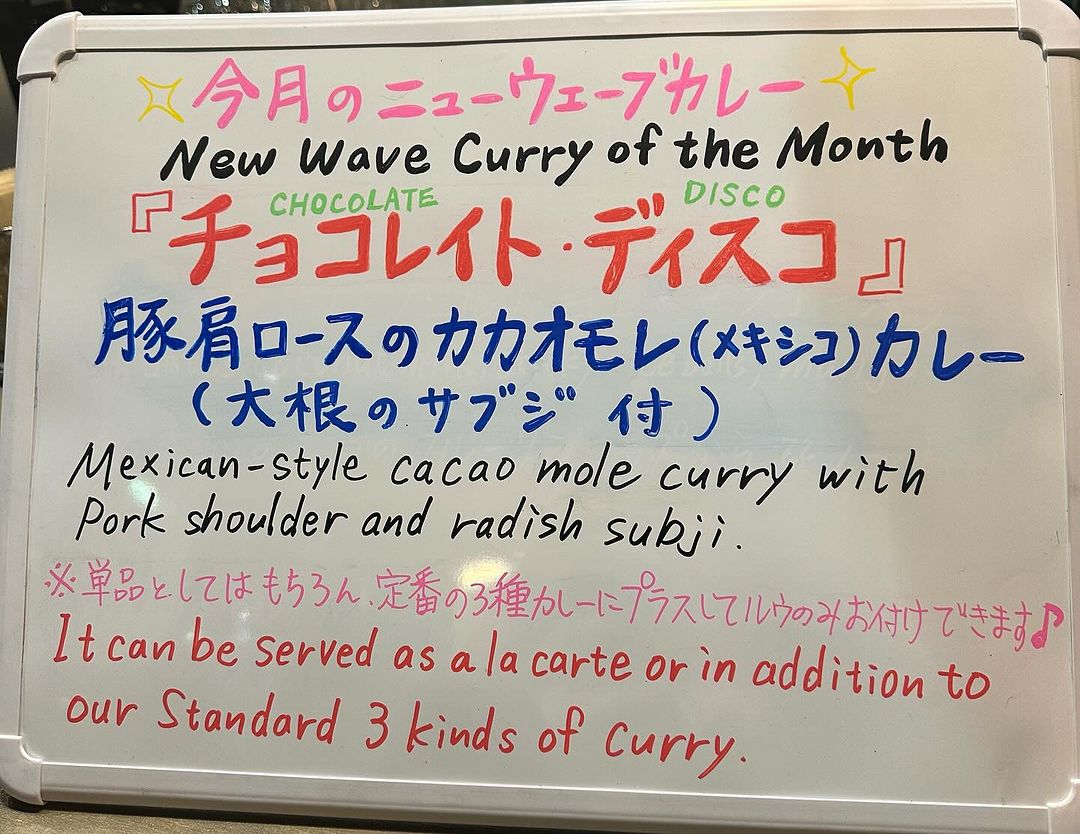 今月のニューウェーブカレー
New Wave Curry of the Month
CHOCOLATE DISCO
『チョコレイト・ディスコ』
豚肩ロースのカカオモレ(メキシコ)カレー
(大根のサブジ付)
Mexican-style cacao mole curry with
Pork shoulder and radish subji.
※単品としてはもちろん、定番の3種カレーにプラスしてルウのみお付けできます♪
It can be served as a la carte or in addition to
our Standard 3 kinds of curry.